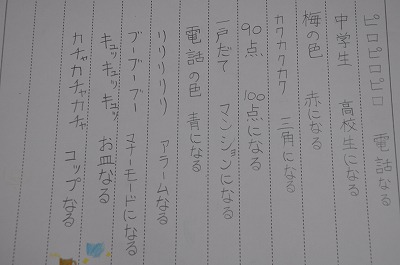 ピロピロピロ 電話なる
中学生 高校生になる
梅の色 赤になる
カクカクカク 三角になる
90点 100点になる
一戸だて マンションになる
電話の色 青になる
リリリリリ アラームなる
ブーブーブー マナーモードになる
キュッキュッキュッ お皿なる
カチャカチャカチャ コップなる